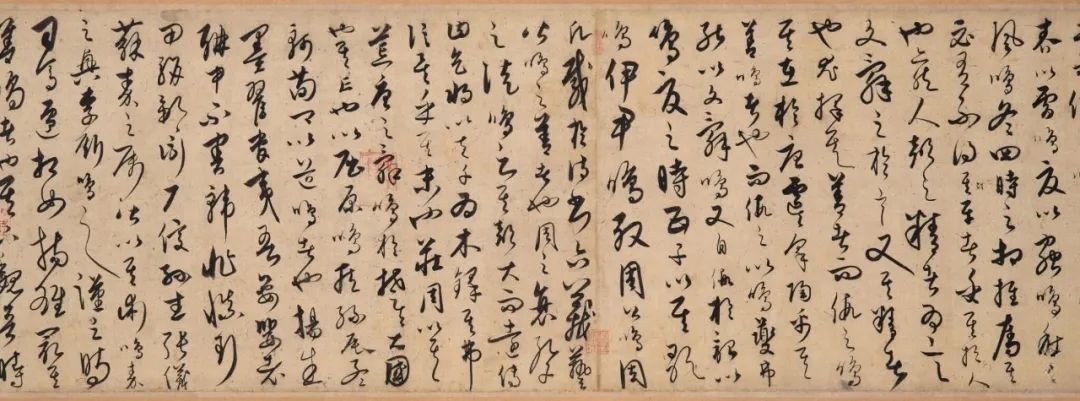 春以雷鳴夏以蟲鳴秋以
風鳴冬四時之相推奪其
必有不得其平者乎其於人
也亦然人聲之精者為之言
文辭之於言又其精者
也尤擇其善者而假之鳴
其在於唐虞咎陶禹其
善鳴者也而假之以鳴夔弗
能以文辭鳴又自假於韶以
鳴夏之時五子以其歌
鳴伊尹鳴殷周公鳴周
凡載於詩書六藝
皆鳴之善者也周之衰孔子
之徒鳴之其聲大而遠傳
曰天將以夫子為木鐸其弗
信矣乎其末也莊周以其
荒唐之辭鳴於楚大國
也其亡也以屈原鳴臧孫辰孟
軻荀卿以道鳴者也楊朱
墨翟管夷吾晏嬰老
聃申不害韓非慎到
田駢鄒衍尸佼孫武張儀
蘇秦之屬皆以其術鳴秦
之興李斯鳴之漢之時
司馬遷相如揚雄最其
善鳴者也其下魏晉時